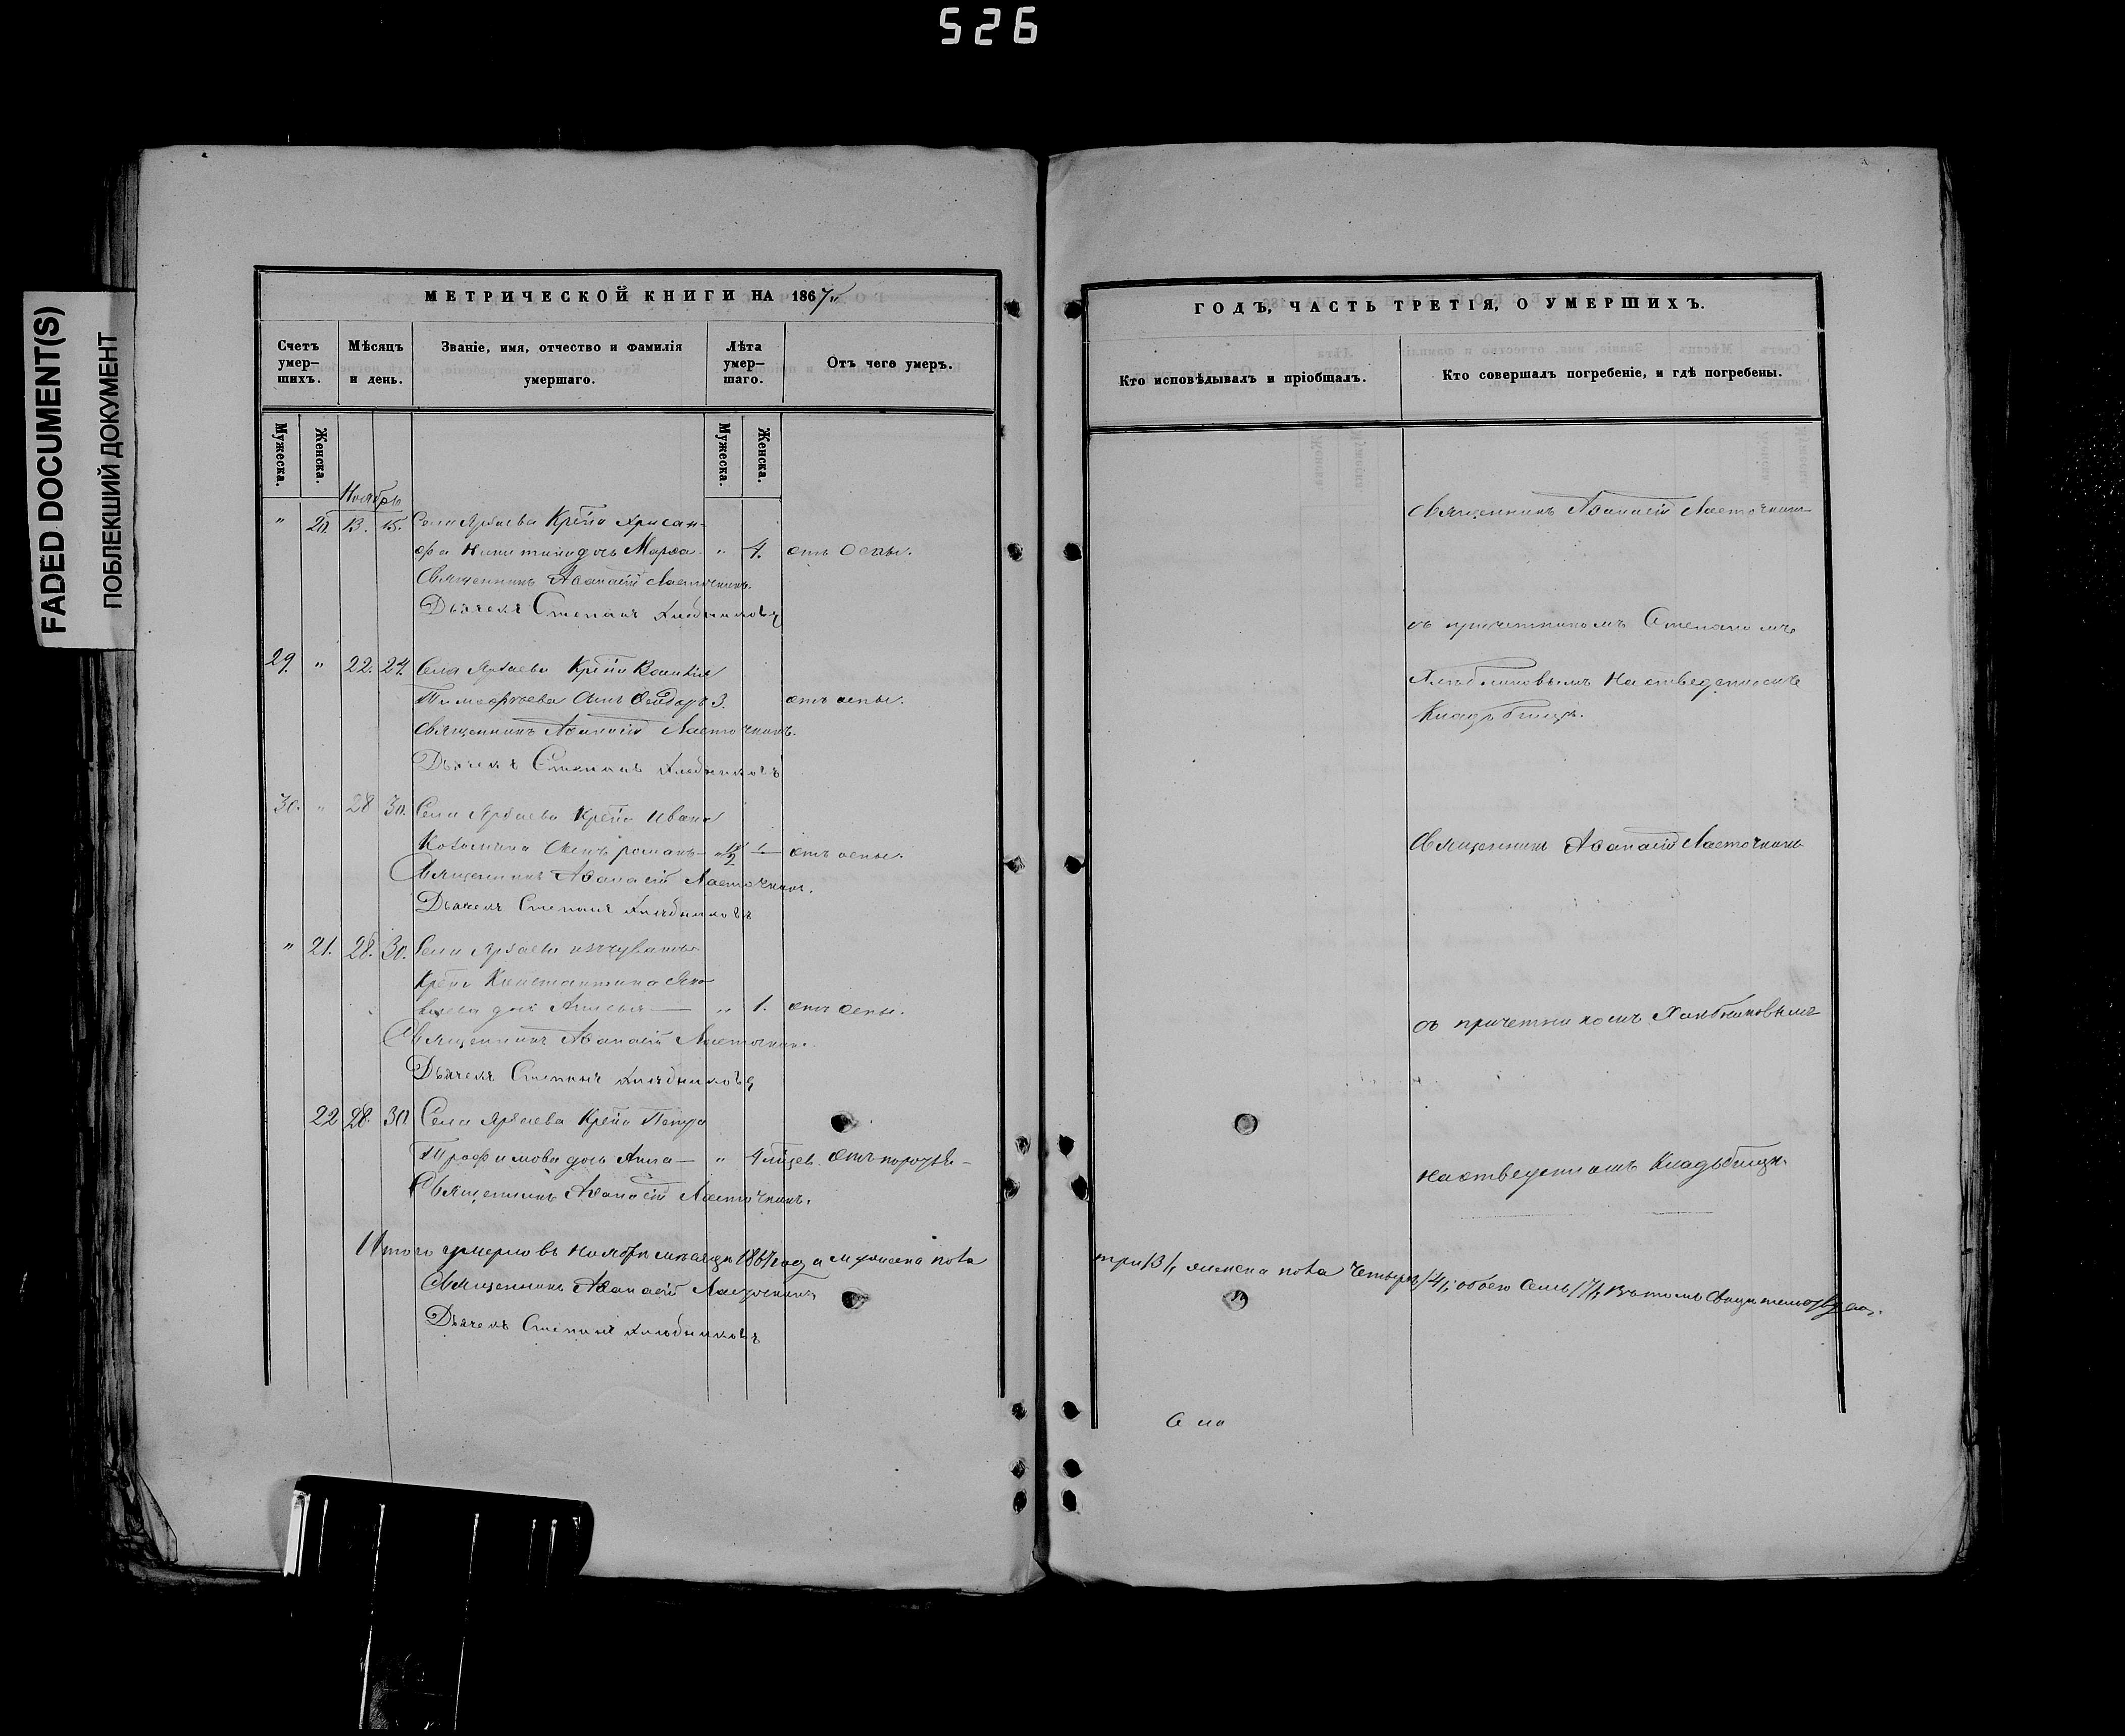 526
FADED DOCUMENT(S)
ПОБЛЕКШИЙ ДОКУМЕНТ
МЕТРИЧЕСКОЙ КНИГИ НА 1867й
Счетъ умер-шихъ.
Мѣсяцъ и день.
Званіе, имя, отчество и фамилія умершаго.
Лѣта умер-шаго.
Отъ чего умеръ.
Мужеска.
Женска.
Мужеска.
Женска.
Ноябрь
" 20. 13. 15. Села Крест. Хрисан-
фа Никитина дочь Марѳа " 4. отъ оспы.
Священникъ Аѳанасій Ласточкинъ.
Дьячекъ Степанъ Хлебниковъ
29. " 22. 24. Села Крест.
Тимофѣева сынъ 3. отъ оспы.
Священникъ Аѳанасій Ласточкинъ.
Дьячекъ Степанъ Хлебниковъ
30. " 28 30. Села Крест. Ивана
сынъ романъ отъ оспы.
Священникъ Аѳанасій Ласточкинъ.
Дьячекъ Степанъ Хлебниковъ
" 21. 28. 30. Села изъ чувашъ
Крест. Константина Яко
влева дочь " 1. отъ оспы.
Священникъ Аѳанасій Ласточкинъ.
Дьячекъ Степанъ Хлебниковъ
22 28. 30 Села Крест. Петра
Трофимова дочь Анна " 4
Священникъ Аѳанасій Ласточкинъ.
Итого умерло въ Ноябрѣ мѣсяцѣ 1867 года мужеска пола
Священникъ Аѳанасій Ласточкинъ
Дьячекъ Степанъ Хлебниковъ
ГОДЪ, ЧАСТЬ ТРЕТІЯ, О УМЕРШИХЪ.
Кто исповѣдывалъ и пріобщалъ.
Кто совершалъ погребеніе, и гдѣ погребены.
Священникъ Аѳанасій Ласточкинъ
съ причетникомъ Степаномъ
Хлѣбниковымъ на отведенномъ
Кладбищѣ.
Священникъ Аѳанасій Ласточкинъ
съ причетникомъ Хлѣбниковымъ
на отведенномъ Кладбищѣ.
три /3/, женска пола четыре /4/, обоего семь /7/, въ томъ